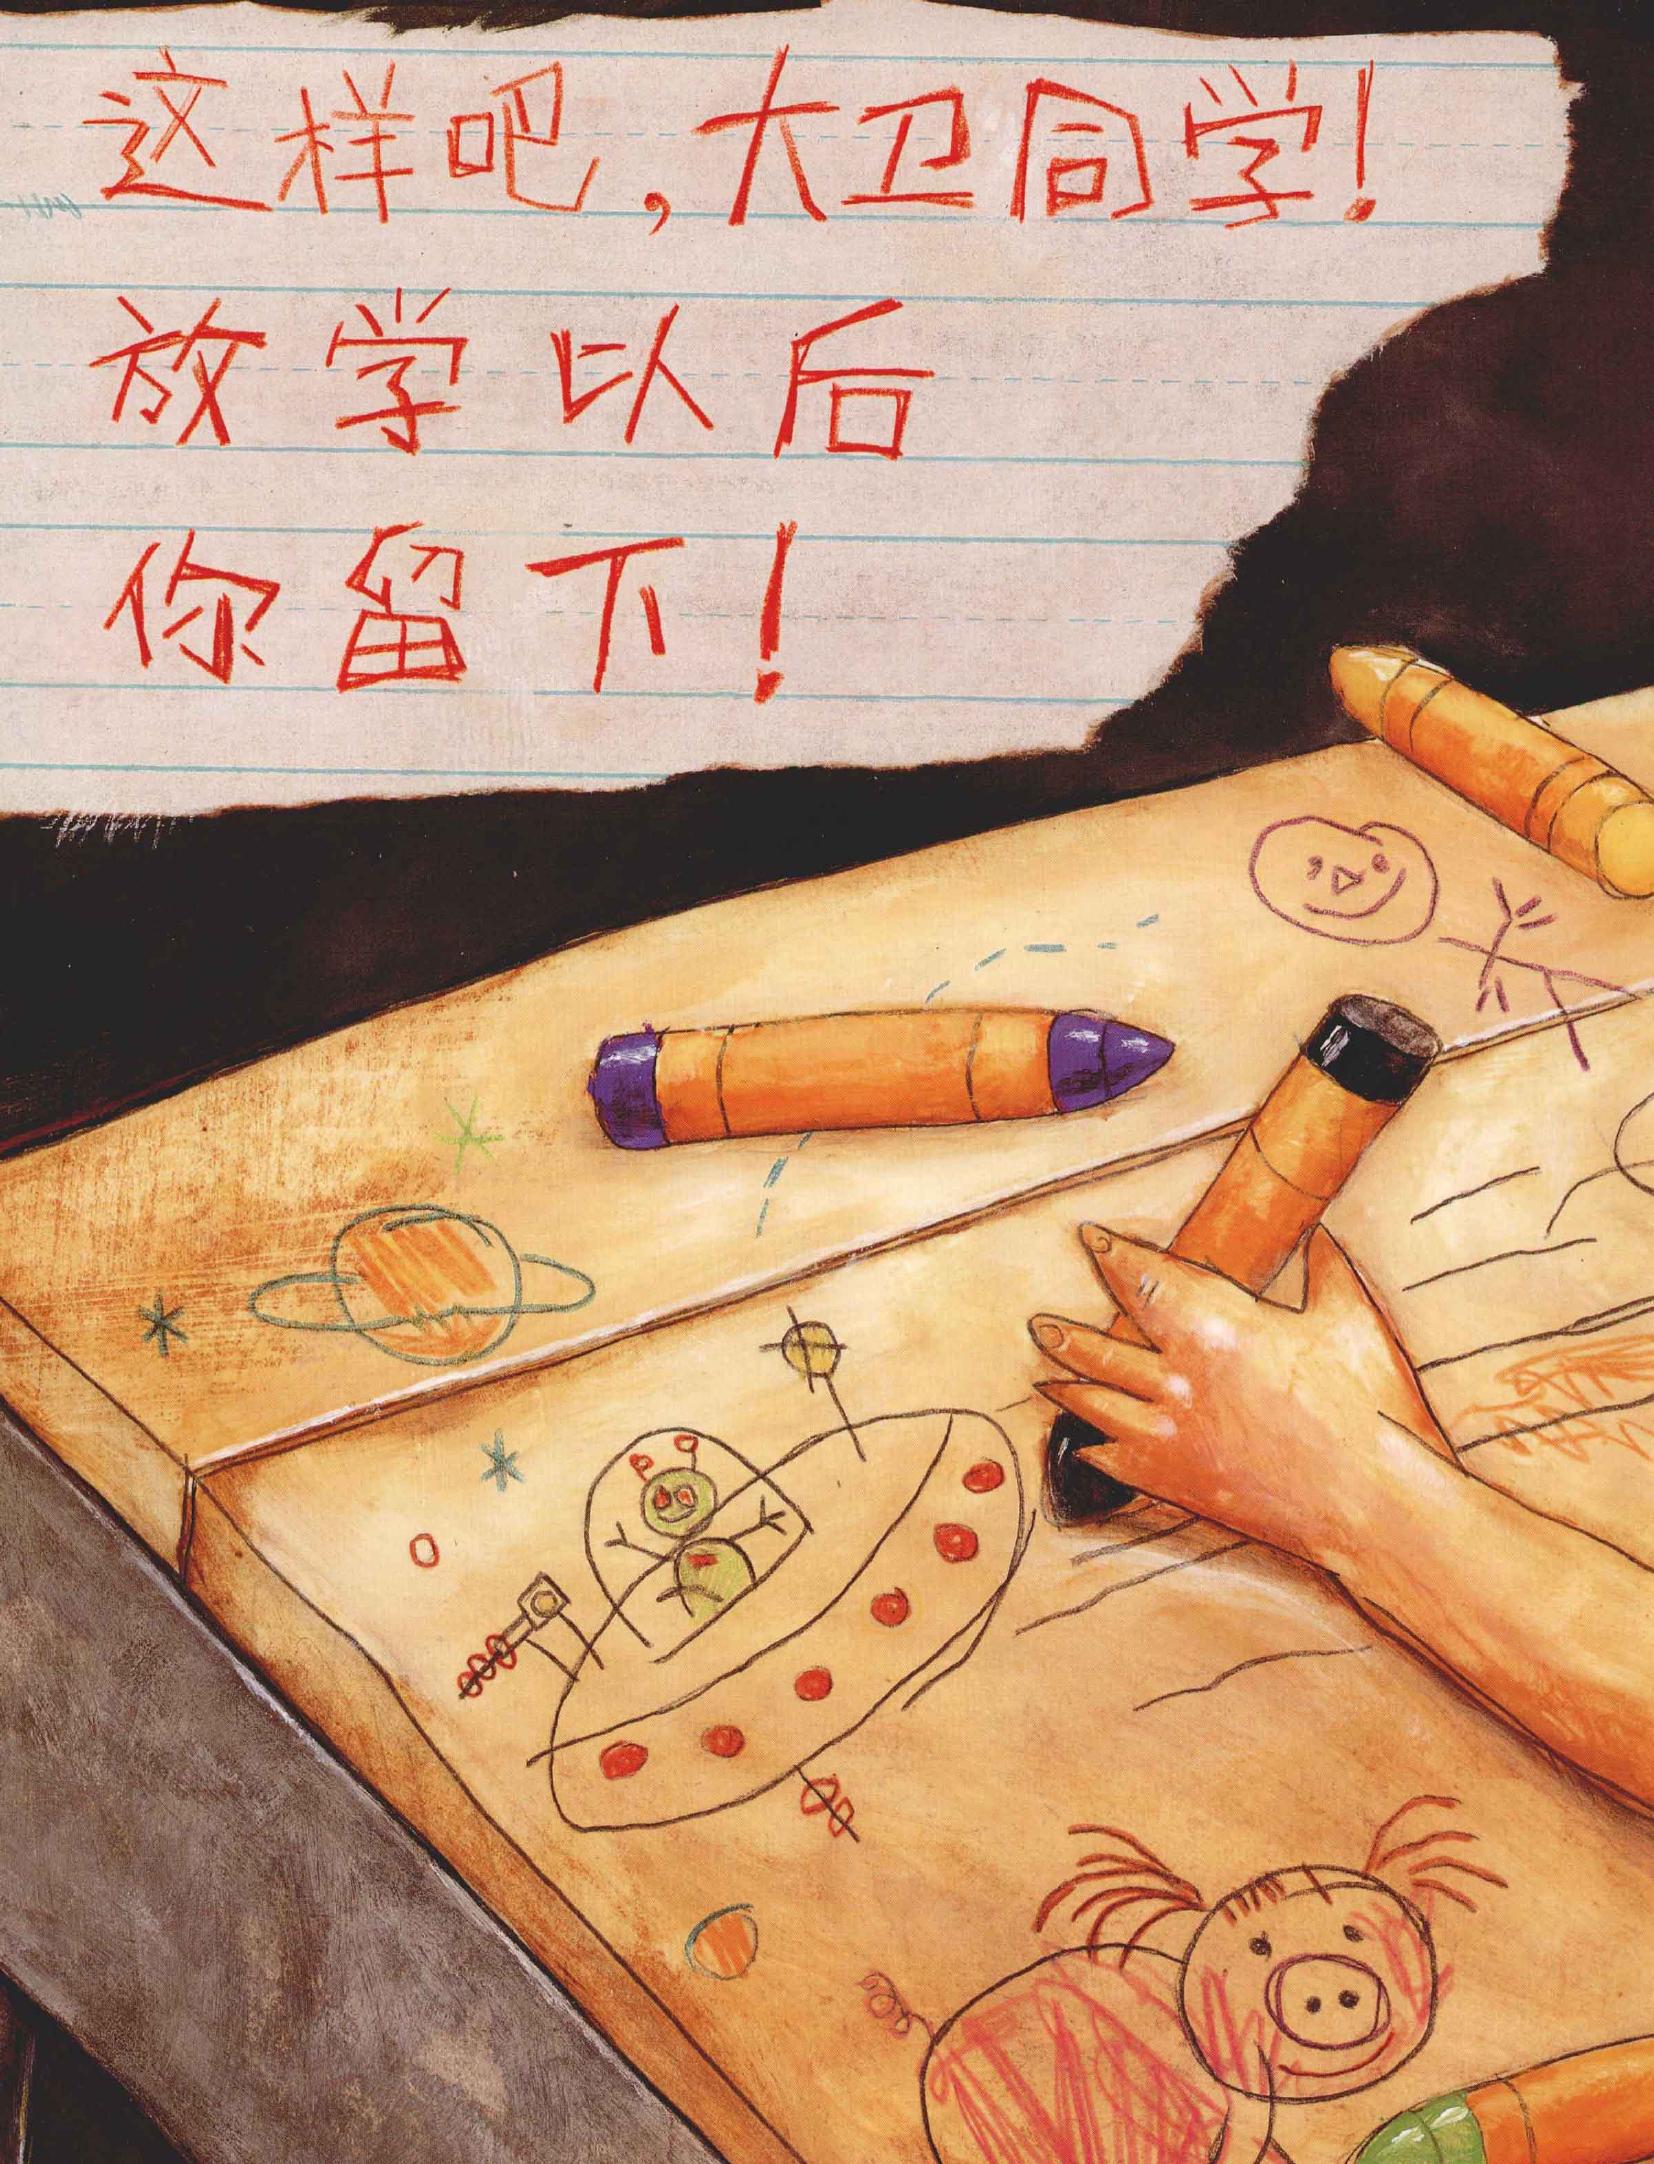 这样吧，大卫同学！
放学以后
你留下！